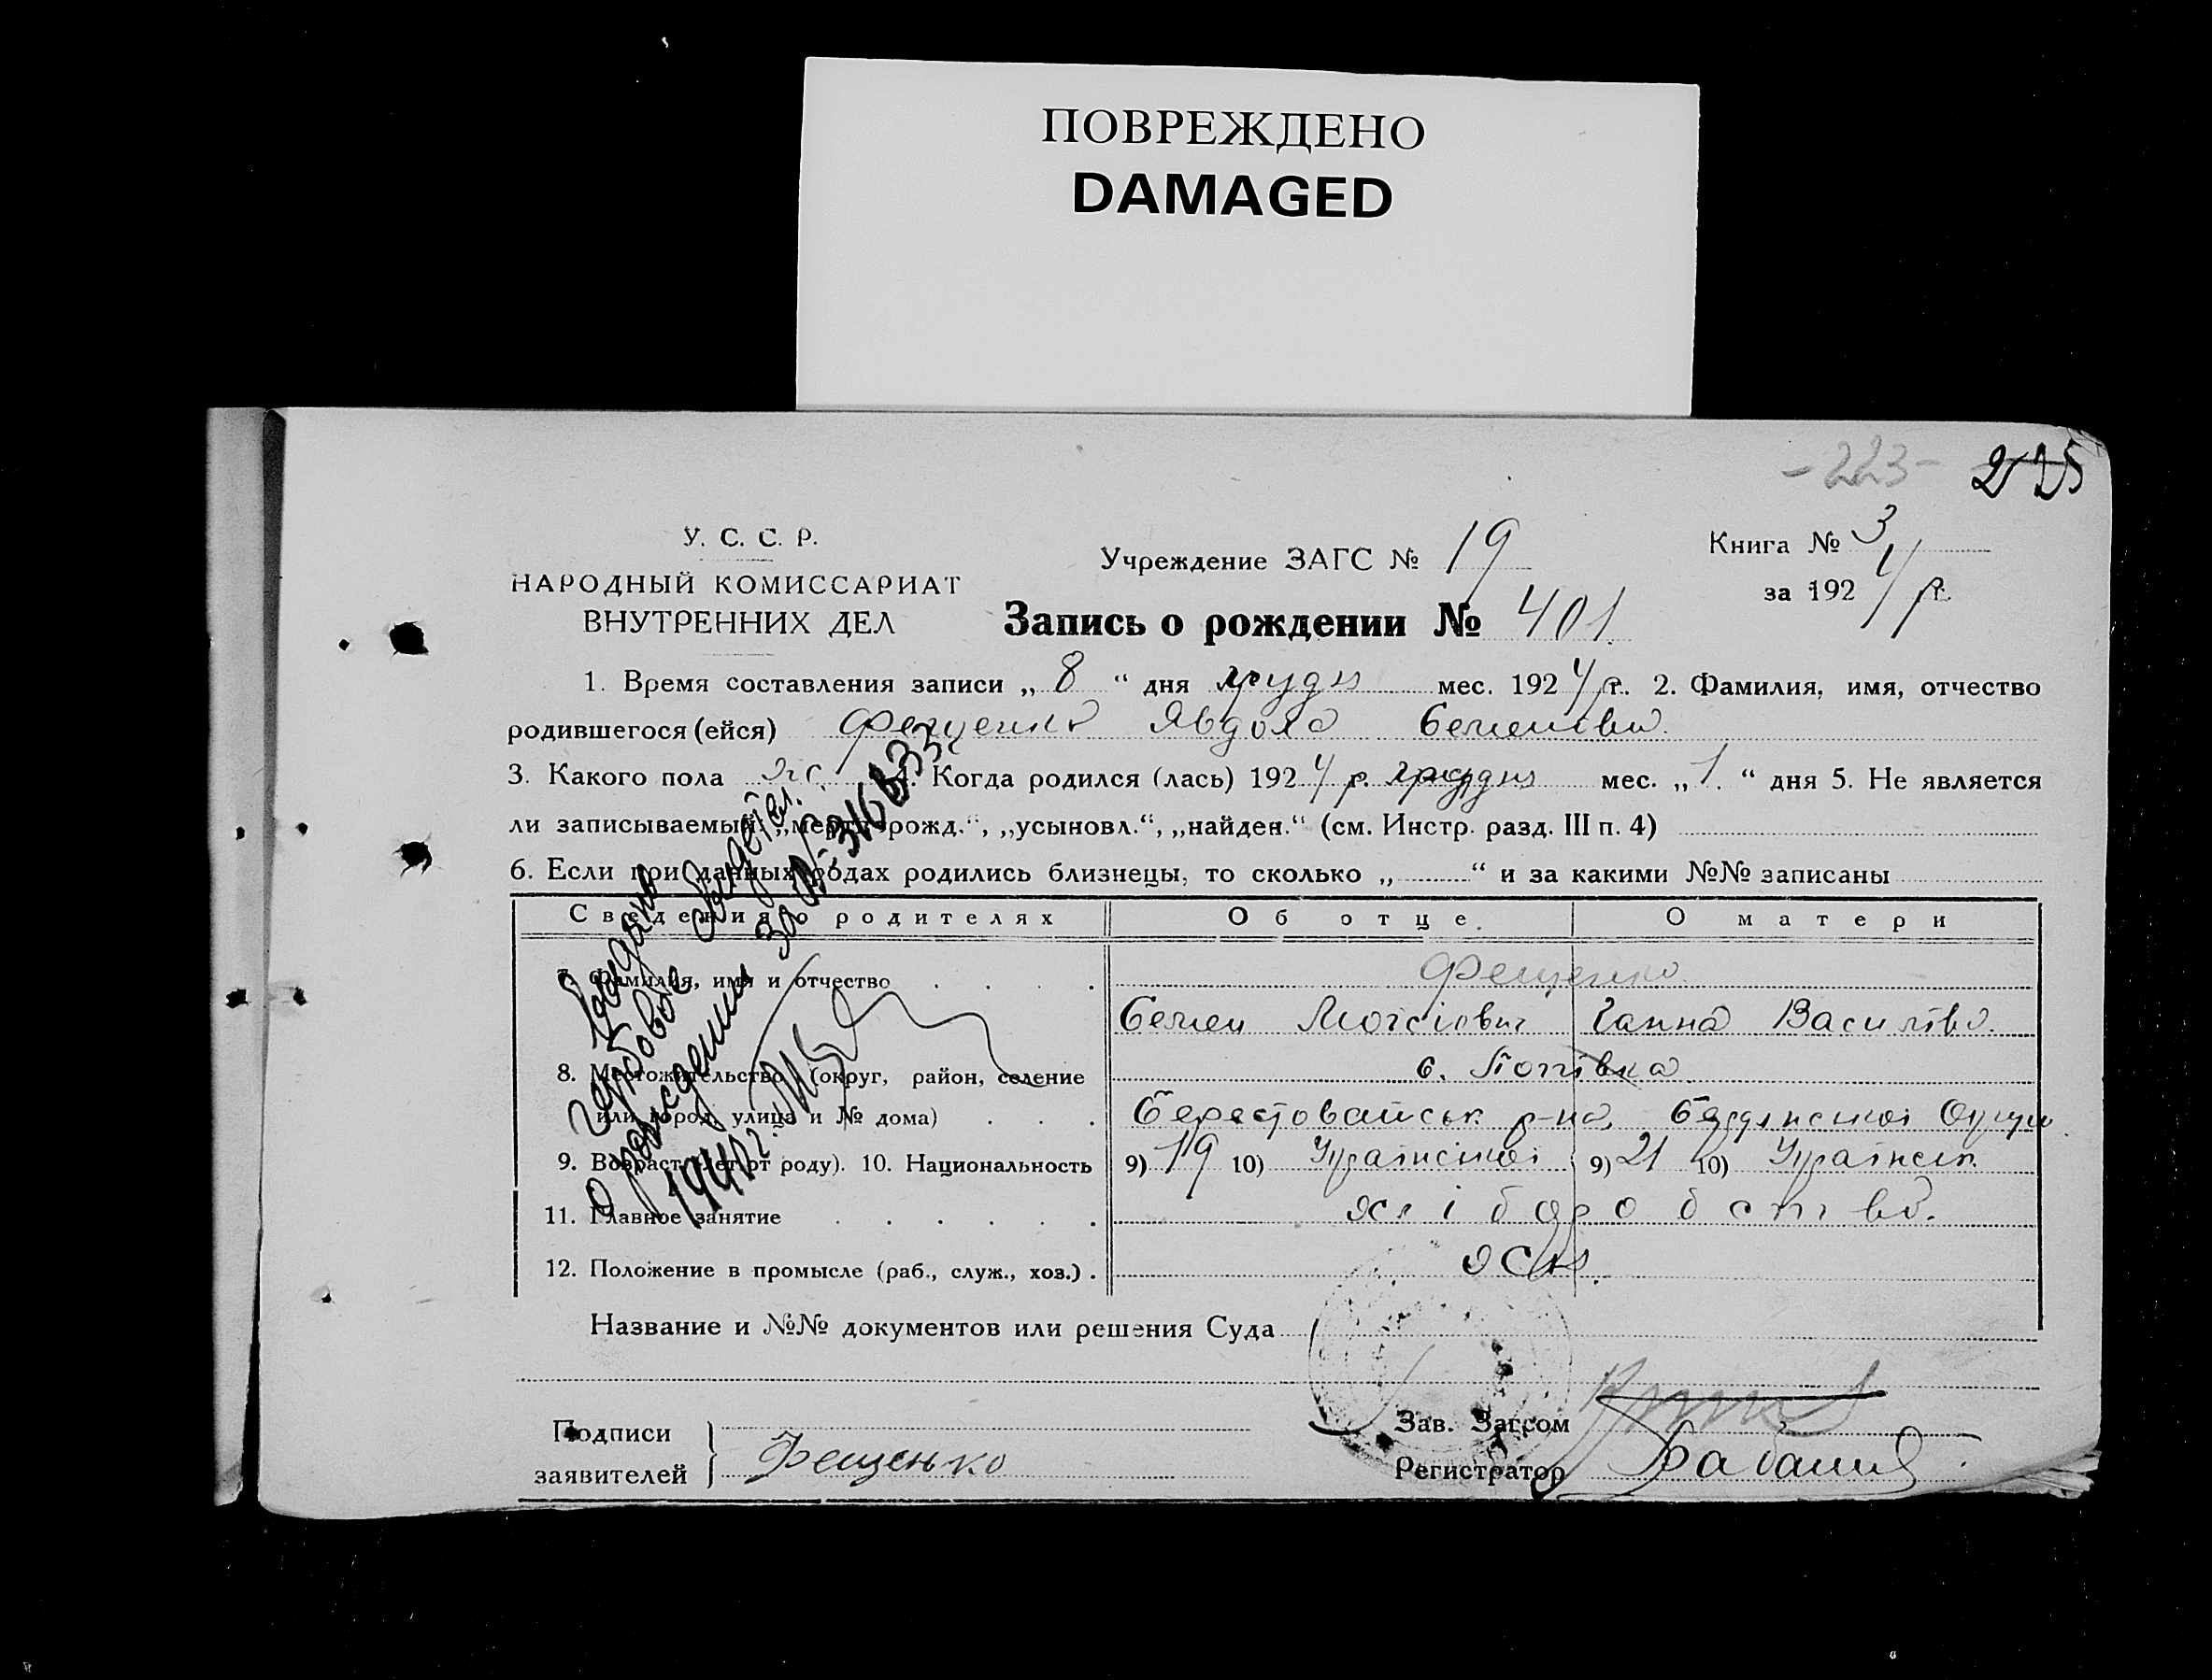 ПОВРЕЖДЕНО
DAMAGED
- 223 -
У. С. С. Р.
НАРОДНЫЙ КОМИССАРИАТ
ВНУТРЕННИХ ДЕЛ
Учреждение ЗАГС № 19
Книга № 3
за 1924 г.
Запись о рождении № 401.
1. Время составления записи „ 8 “ дня грудня мес. 1924 г. 2. Фамилия, имя, отчество
родившегося (ейся) Фещенко Явдоха Семенівна
3. Какого пола жс 4. Когда родился (лась) 1924 р. грудня мес. „ 1. “ дня 5. Не является
ли записываемый: „мертворожд.“, „усыновл.“, „найден.“ (см. Инстр. разд. III п. 4)
6. Если при данных родах родились близнецы, то сколько „ “ и за какими №№ записаны
Сведения о родителях Об отце. О матери
7. Фамилия, имя и отчество Фещенко
Семен Мойсіович Ганна Василівн.
8. Местожительство (округ, район, селение с. Попівка
или город, улица и № дома) Берестовайськ р-на, Бердянської Округи
9. Возраст (лет от роду). 10. Национальность 9) 19 10) Української 9) 21 10) Українськ.
11. Главное занятие хліборобство.
12. Положение в промысле (раб., служ., хоз.)
Название и №№ документов или решения Суда
Подписи
заявителей Фещенко
Зав. Загсом
Регистратор
Выдано
гербовое свидетел.
о рождении за №
1940 г.